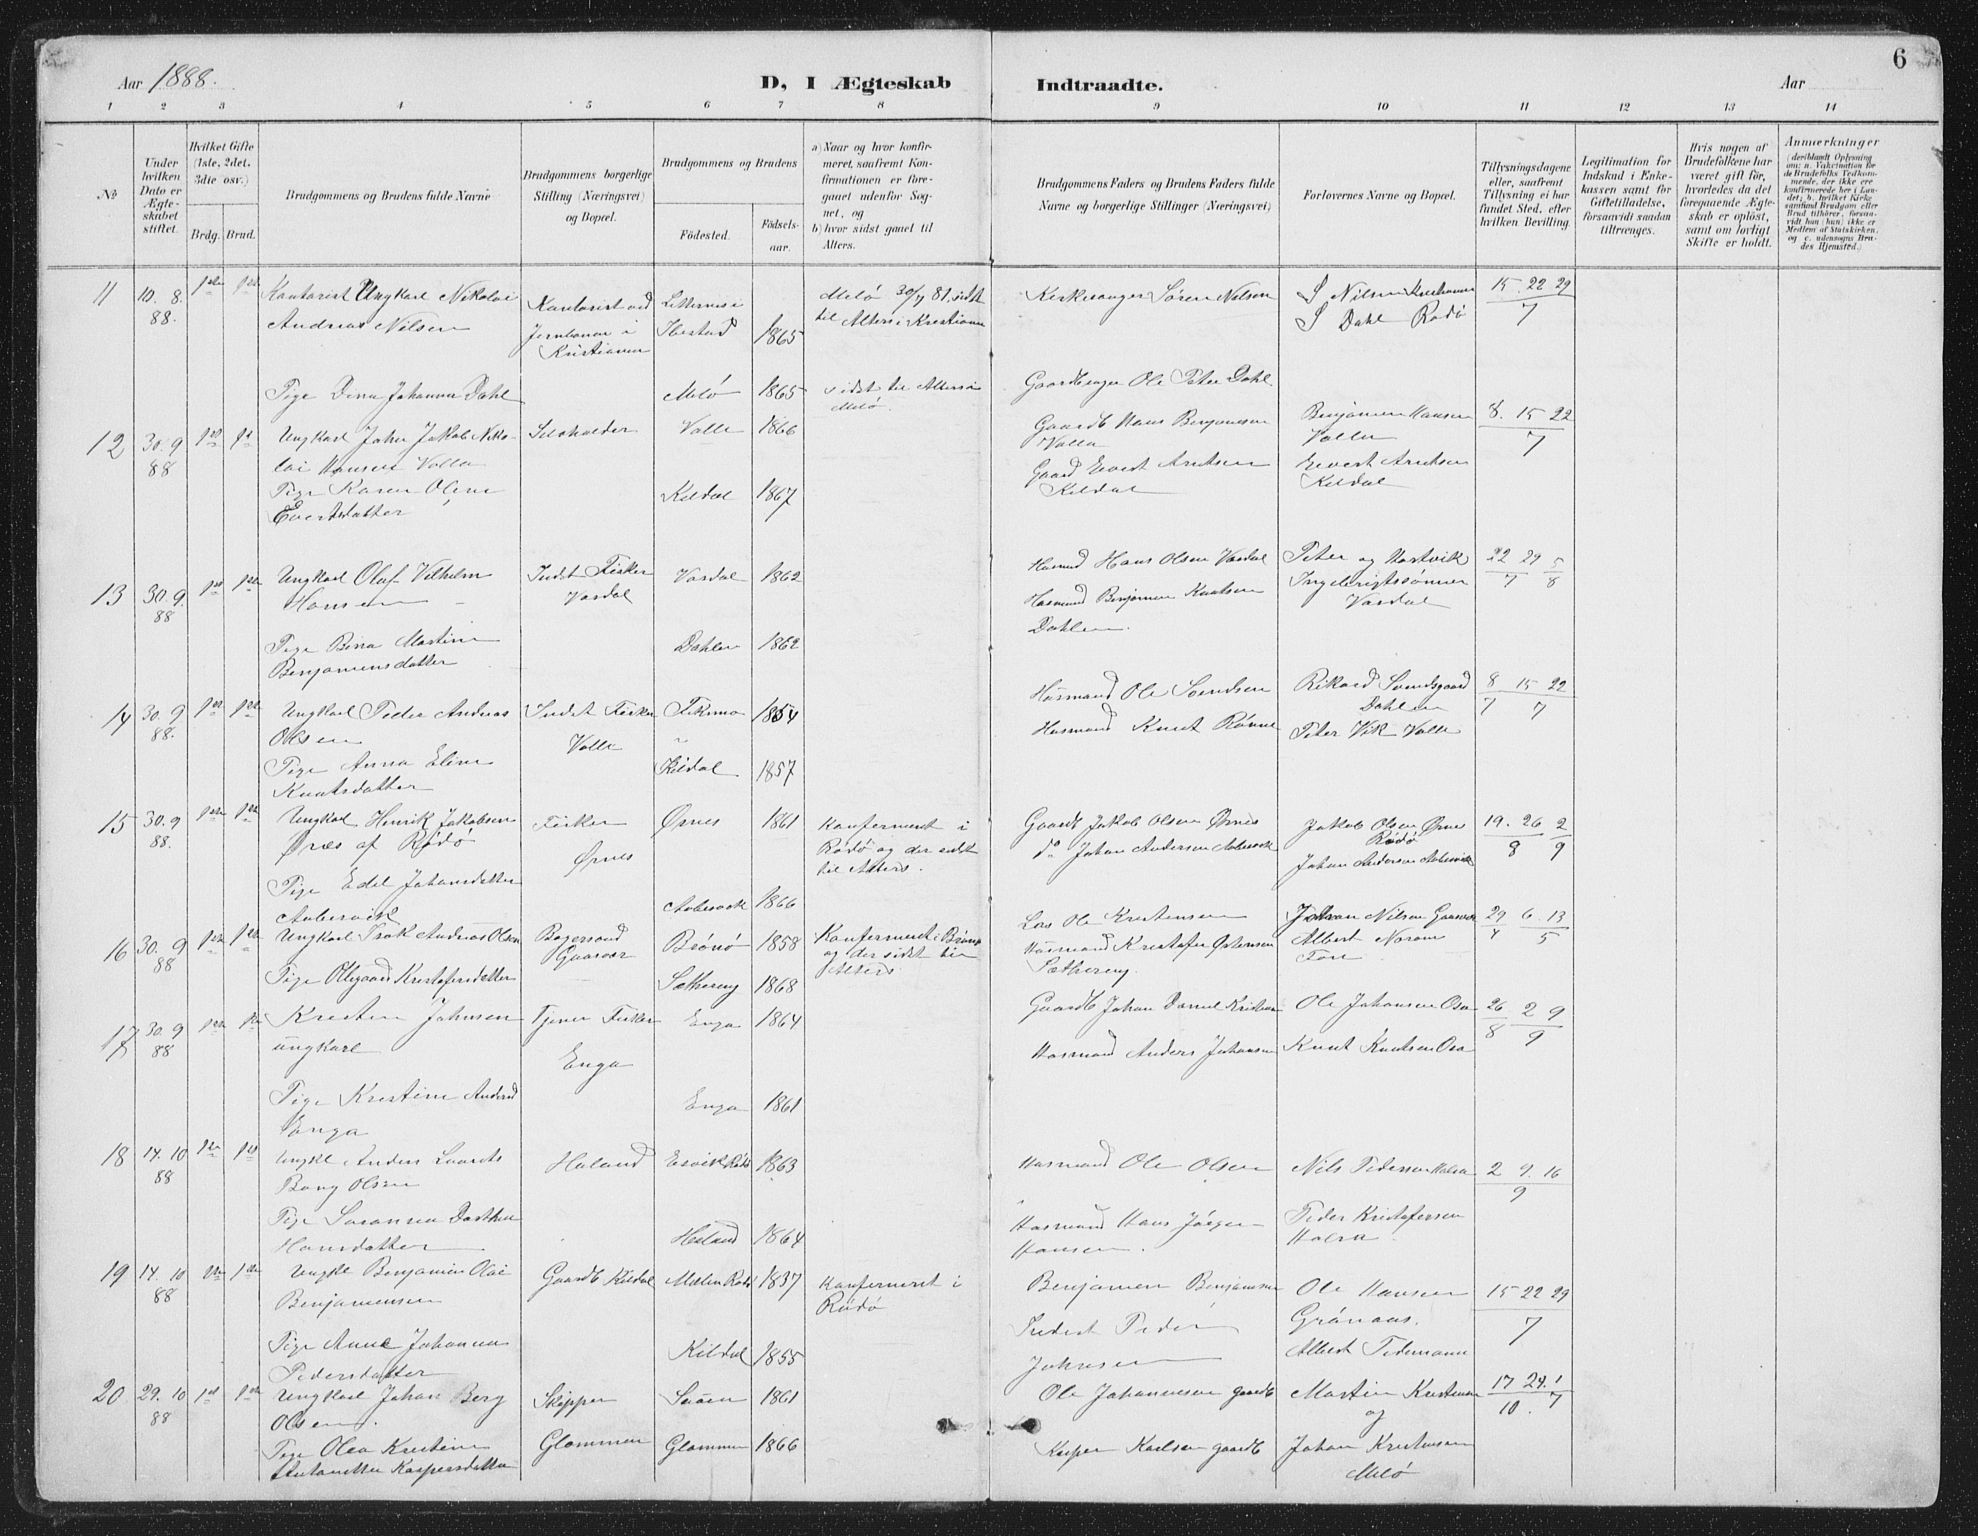 6
Aar 1888.
D, I Ægteskab Indtraadte.
Aar
1 2 3 4 5 6 7 8 9 10 11 12 13 14
No
Under hvilken Dato er Ægteskabet stiftet.
Hvilket Gifte (1ste, 2det, 3die osv.)
Brdg. Brud.
Brudgommens og Brudens fulde Navne
Brudgommens borgerlige Stilling (Næringsvei) og Bopæl.
Brudgommens og Brudens
Fødested.
Fødselsaar.
a) Naar og hvor konfirmeret, saafremt Konfirmationen er foregaaet udenfor Sognet, og
b) hvor sidst gaaet til Alters.
Brudgommens Faders og Brudens Faders fulde Navne og borgerlige Stillinger (Næringsvei)
Forlovernes Navne og Bopæl.
Tillysningsdagene eller, saafremt Tillysning ei har fundet Sted, efter hvilken Bevilling.
Legitimation for Indskud i Enkekassen samt for Giftetilladelse, forsaavidt saadan tiltrænges.
Hvis nogen af Brudefolkene har været gift før, hvorledes da det foregaaende Ægteskab er opløst, samt om lovligt Skifte er holdt.
Anmerkninger
(deriblandt Oplysning om: a. Vakcination for de Brudefolks Vedkommende, der ikke ere konfirmerede her i Landet; b. hvilket Kirkesamfund Brudgom eller Brud tilhører, forsaavidt han (hun) ikke er Medlem af Statskirken, og c. udensogns Brudes Hjemsted.)
11 10. 8. 88. Kontorist Ungkarl Nikolai Andreas Nilsen
Kontorist ved Jernbanen i Kristiania
Ibestad 1865
Melø 30/7 81, sidst til Alters i Kristiania
Kirkesanger Søren Nilsen
S Nilsen
S Dahl Rødø
15 22 29 / 7
Pige Dina Johanna Dahl
Melø 1865
sidst til Alters i Melø.
Gaardbruger Ole Peter Dahl
12 30. 9 88 Ungkarl Johan Jakob Nikolai Hansen Valla
Selvholder
Valle 1866
Gaardb Hans Benjaminsen Valla
Benjamin Hansen Valla
8. 15 22 / 7
Pige Karen Oline Evertsdatter
Kildal 1867
Gaard Evert Arntsen Kildal
Evert Arntsen Kildal
13 30. 9. 88 Ungkarl Olaf Vilhelm Hansen
Indst Fisker Vasdal
Vasdal 1862
Husmd Hans Olsen Vasdal
Peter og Hartvik Ingebrigtssønner Vasdal
22 29 / 7 5 / 8
Pige Bina Martine Benjaminsdatter
Dahlen 1862
Husmand Benjamin Knutsen Dahlen
14 30. 9 88. Ungkarl Peder Andreas Olsen
Indst Fisker Valle
1854
Husmand Ole Svendsen
Rikard Svendsgaard Dahlen
8 / 7 15 22 / 7
Pige Anna Eline Knutsdatter
Kildal 1857
Husmand Knut Rønne
Peter Vik Valle
15 30. 9 88. Ungkarl Henrik Jakobsen Ørnes af Rødø
Fisker Ørnes
Ørnes 1861
Konfirmeret i Rødø og der sidst til Alters.
Gaardb Jakob Olsen Ørnes
Jakob Olsen Ørnes Rødø
19. 26 / 8 2 / 9
Pige Edel Johansdatter Aabesvik
Aabesvik 1866
do Johan Andersen Aabesvik
Johan Andersen Aabesvik
16 30. 9 88 Ungkarl Isak Andreas Olsen
Brønø 1858
Konfirmeret i Brønø og der sidst til Alters
Los Ole Kristensen
Johan Nilsen
29 / 4 6 13 / 5
Pige Olegaard Kristofersdatter
Sæthereng 1868
Husmand Kristofer Østensen Sætherong
Albert Norum Fore
17 30. 9 88 Kristen Johnsen ungkarl
Tjener Fisker Enga
Enga 1864
Gaardb Johan Daniel Kristian
Ole Johansen Osa
26 / 8 2 9 / 9
Pige Kristine Andersd Enga
Enga 1861
Husmand Anders Johansen
Knut Knutsen Osa
18 14. 10 88 Ungkl Anders Laurits Bang Olsen
Haland
Esvik Rødø 1863
Husmand Ole Olsen
Nils Pedersen Halsa
2 9. 16 / 9
Pige Susanna Dorthea Hansdatter
Haland 1864
Husmand Hans Jørgen Hansen.
Peder Kristofersen Halsa
19 14. 10 88 Ungkl Benjamin Olai Benjaminsen
Gaardb Kildal
1837
Konfirmeret i Rødø
Benjamin Benjaminsen
Ole Hansen Grønaas.
15 22 29 / 7
Pige Anne Johanna Pedersdatter
Kildal 1855
Inderst Peder Johnsen
Albert Tidemann
20 29. 10 88 Ungkarl Johan Berg Olsen.
Skipper Glommen
1861
Ole Johannesen gaardb
Martin Kristensen og
17 24. / 10. 1 / 7
Pige Olea Kristine Antonette Kaspersdatter
Glommen 1866
Kasper Karlsen gaardb
Johan Kristensen Melø